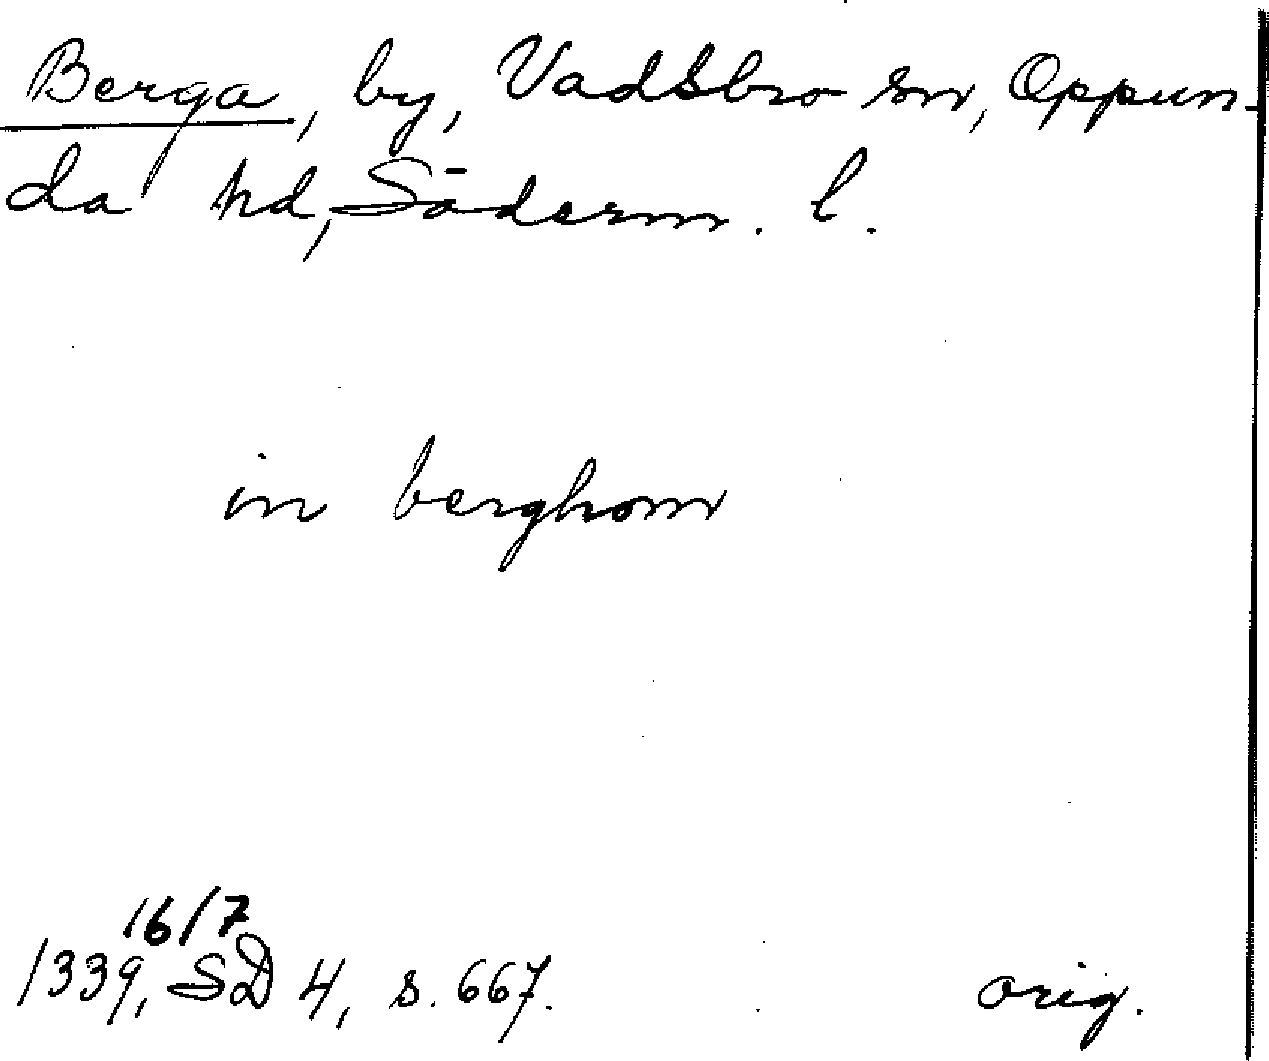 Berga, by, Vadsbro sn, Oppun-
da hd, Söderm. l.
in berghom
16/7
1339, SD 4, s. 667.
orig.